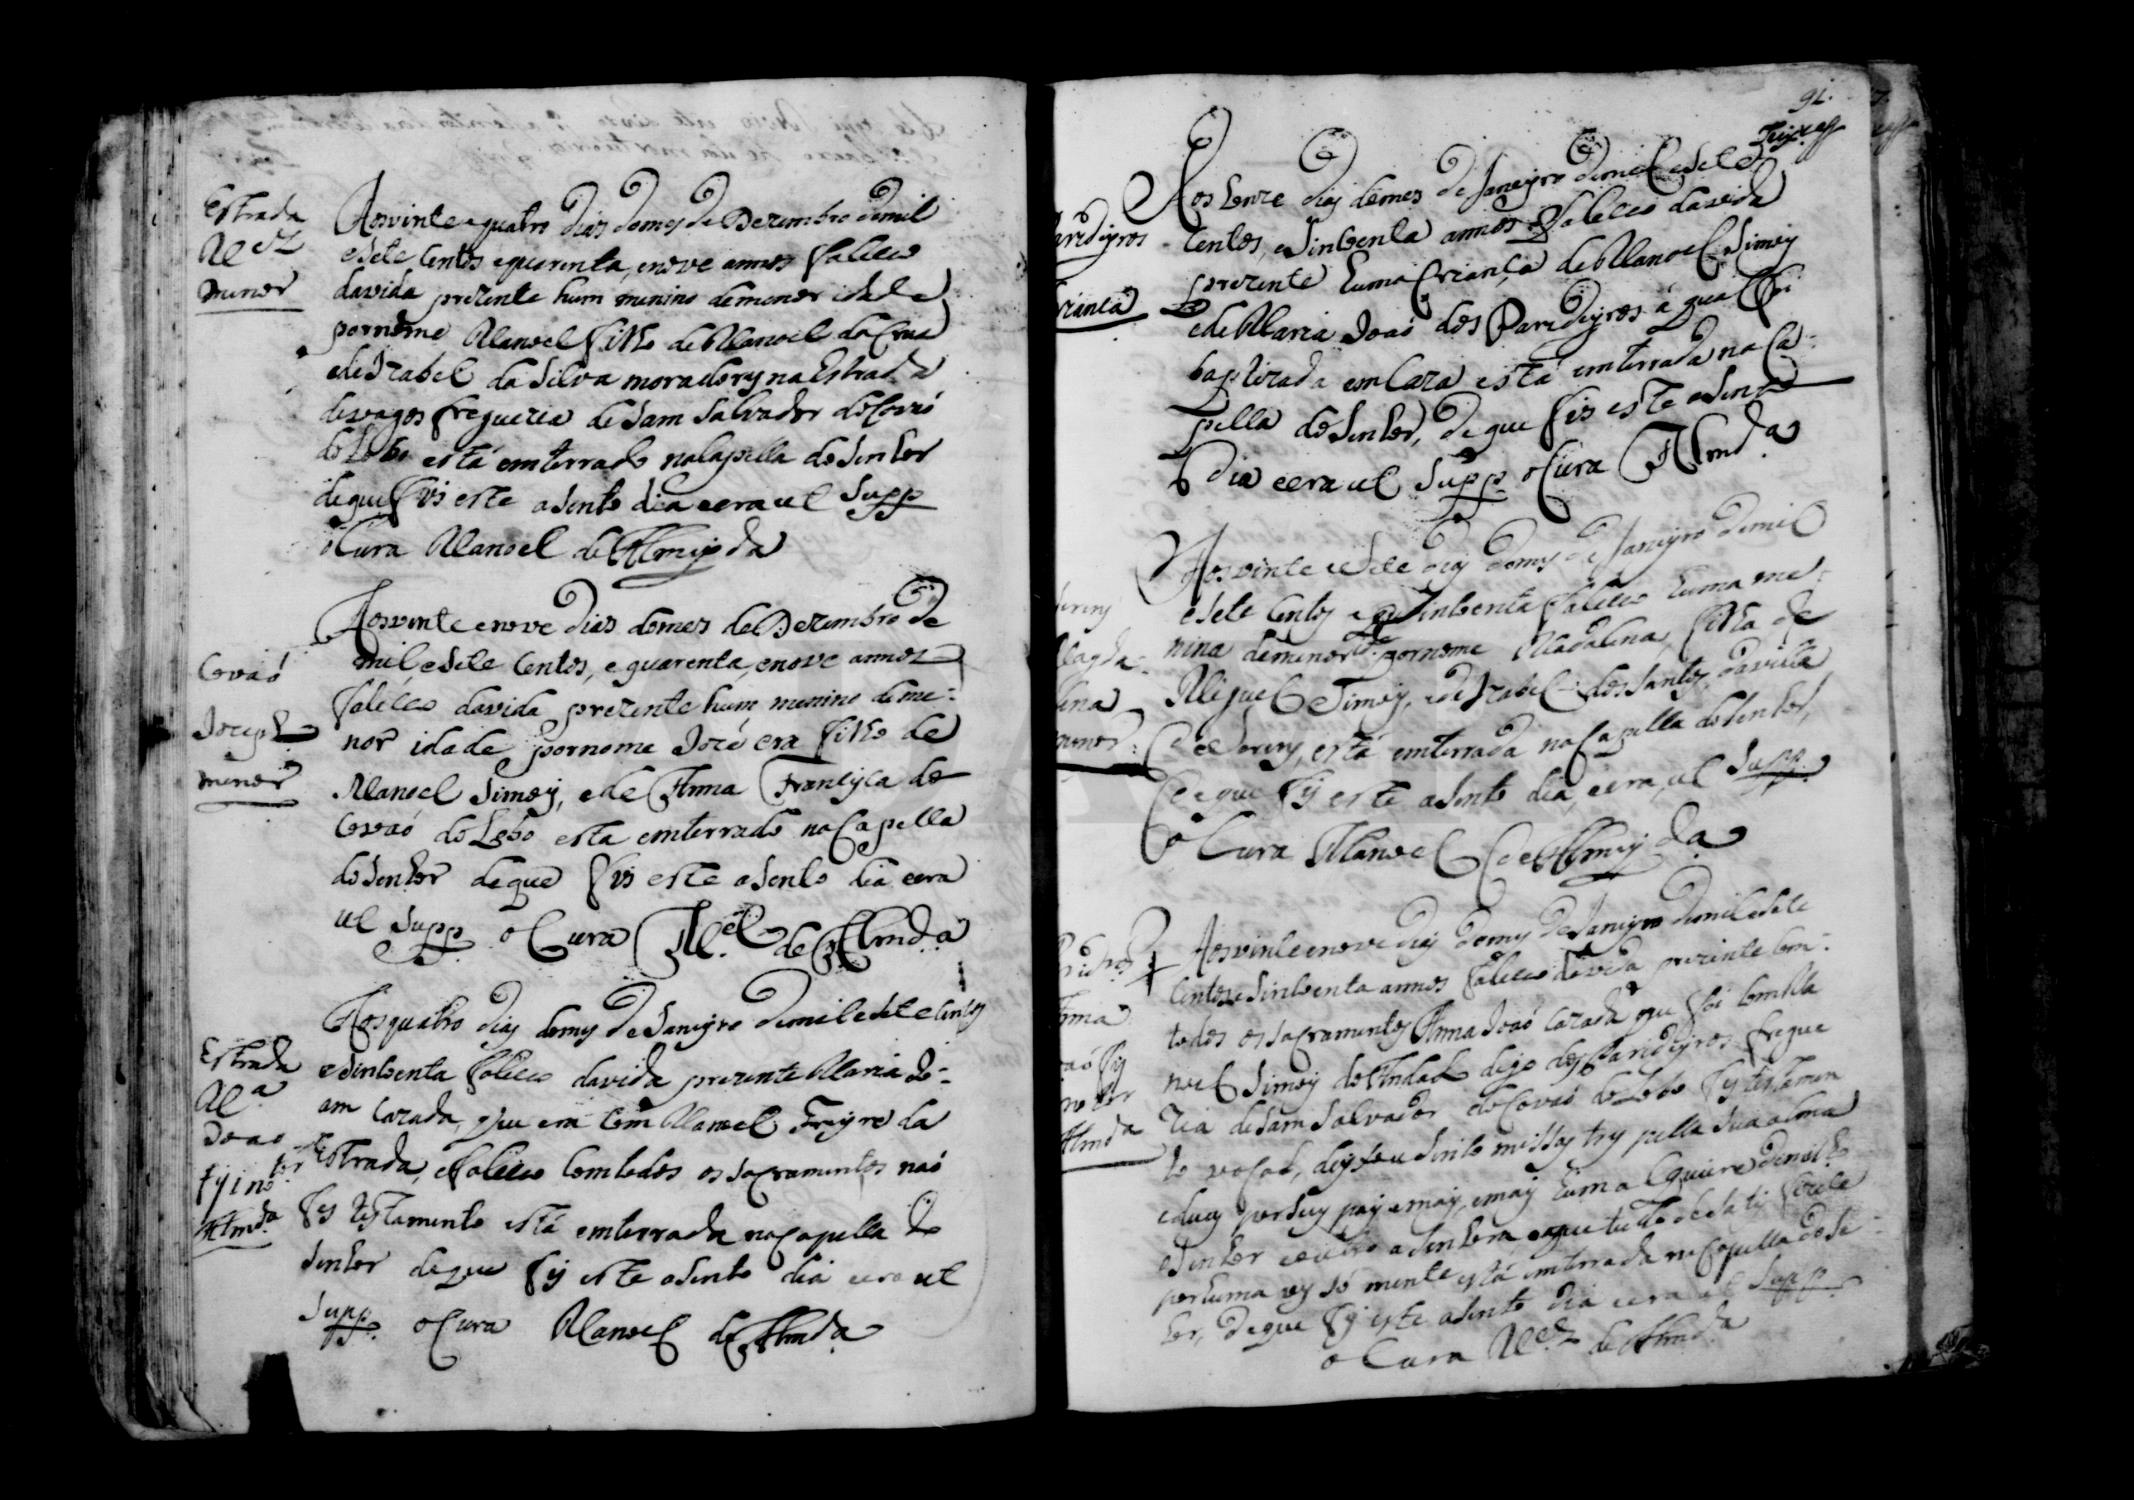 Estrada
M.el
menor
Aosvinte equatro dias domes de Dezembro demil
esete centos equarenta, enove annos faleceo
davida prezente hum menino demenor idade
pornome Manoel filho de Manoel da Crus
ede Izabel da Silva moradores na Estrada
devagos freguezia de Sam Salvador do Covaó
do Lobo está emterrado na Capella do Senhor
de que fis este asento dia eera ut Supp
o Cura Manoel de Almeyda
Covaó
Joseph
menor
Aosvinte enove dias domes de Dezembro de
mil, esete centos, e quarenta, enove annos
faleceo davida prezente hum menino deme-
nor idade pornome José era filho de
Manoel Simoes, ede Anna Francisca do
Covaó do Lobo esta emterrado na Capella
do Senhor de que fis este asento dia eera
ut Supp o Cura M.el de Almd.a
Estrada
M.a
Joao
Almd.a
Aos quatro dias domes de Janeyro demil esete centos
esincoenta faleceo davida prezente Maria Jo-
am cazada, que era com Manoel Freyre da
Estrada, faleceo comtodos os sacramentos naó
fes testamento está emterrada na Capella do
Senhor de que fis este asento dia eera ut
Supp. o Cura Manoel de Almd.a
91.
arideyros
rianca
Aos honze dias domes de Janeyro demil esete
centos, esincoenta annos faleceo davida
prezente huma criança de Manoel Simoes
ede Maria Joaó dos Parideyros a qual foi
baptizada em Caza está emterrada na Ca-
pella do Senhor, de que fis este asento
Dia eera ut Supp. o Cura Almd.a
lagda-
lena
menor
Aosvinte esete dias domes de Janeyro demil
esete centos e sincoenta faleceo huma me-
nina demenor id.e pornome Madalena, filha de
Miguel Simoes, ede Izabel dos Santos, davilla
de Sorens, está emterrada na Capella do Senhor,
de que fis este asento dia, eera, ut Supp.
o Cura Manoel de Almeyda
Anna
Almd.a
Aosvinte enove dias domes de Janeyro demil esete
centos esincoenta annos faleceo davida prezente com-
todos os sacramentos Anna Joaó cazada que foi com Ma
noel Simoes do Andade digo dos Parideyros fregue
zia de Sam Salvador do Covaó do Lobo fes testamen
to vocal, deyxou sinco missas tres pella sua alma
eduas por seu pay emay, emais hum alqueire de milho
eSenhor eoutro a Senhora, oque tudo sedatis faraó
porhuma ves só mente está emterrada na Capella do Se-
hor, de que fis este asento dia eera ut Supp.
o Cura M.el de Almd.a